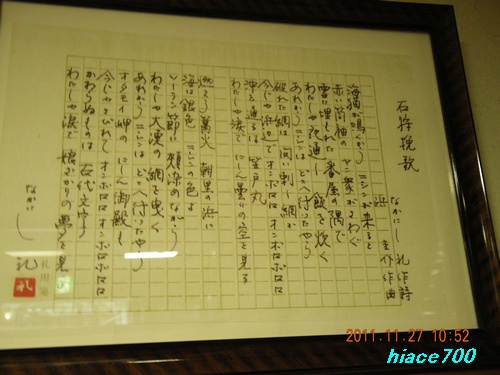 石狩挽歌
なかにし礼 作詩
浜 圭介 作曲
海猫が鳴くから ニシンが来ると
赤い筒袖の ヤン衆がさわぐ
雪に埋もれた 番屋の隅で
わたしゃ夜通し 飯を炊く
あれからニシンは どこへ行ったやら
破れた網は 問い刺し網か
今じゃ浜辺で オンボロロ オンボロボロロ
沖を通るは 笠戸丸
わたしゃ涙で にしん曇りの空を見る
燃えろ篝火 朝里の浜に
海は銀色 ニシンの色よ
ソーラン節に 頬染めながら
わたしゃ大漁の 網を曳く
あれからニシンは どこへ行ったやら
オタモイ岬の にしん御殿も
今じゃさびれて オンボロロ オンボロボロロ
かわらぬものは 古代文字
わたしゃ涙で 娘ざかりの夢を見る
なかにし 礼
礼
2011.11.27 10:52
hiace700